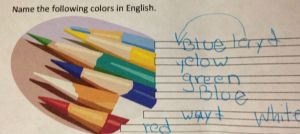 Name the following colors in English.
Blue layt
yelow
green
Blue
wayt White
red